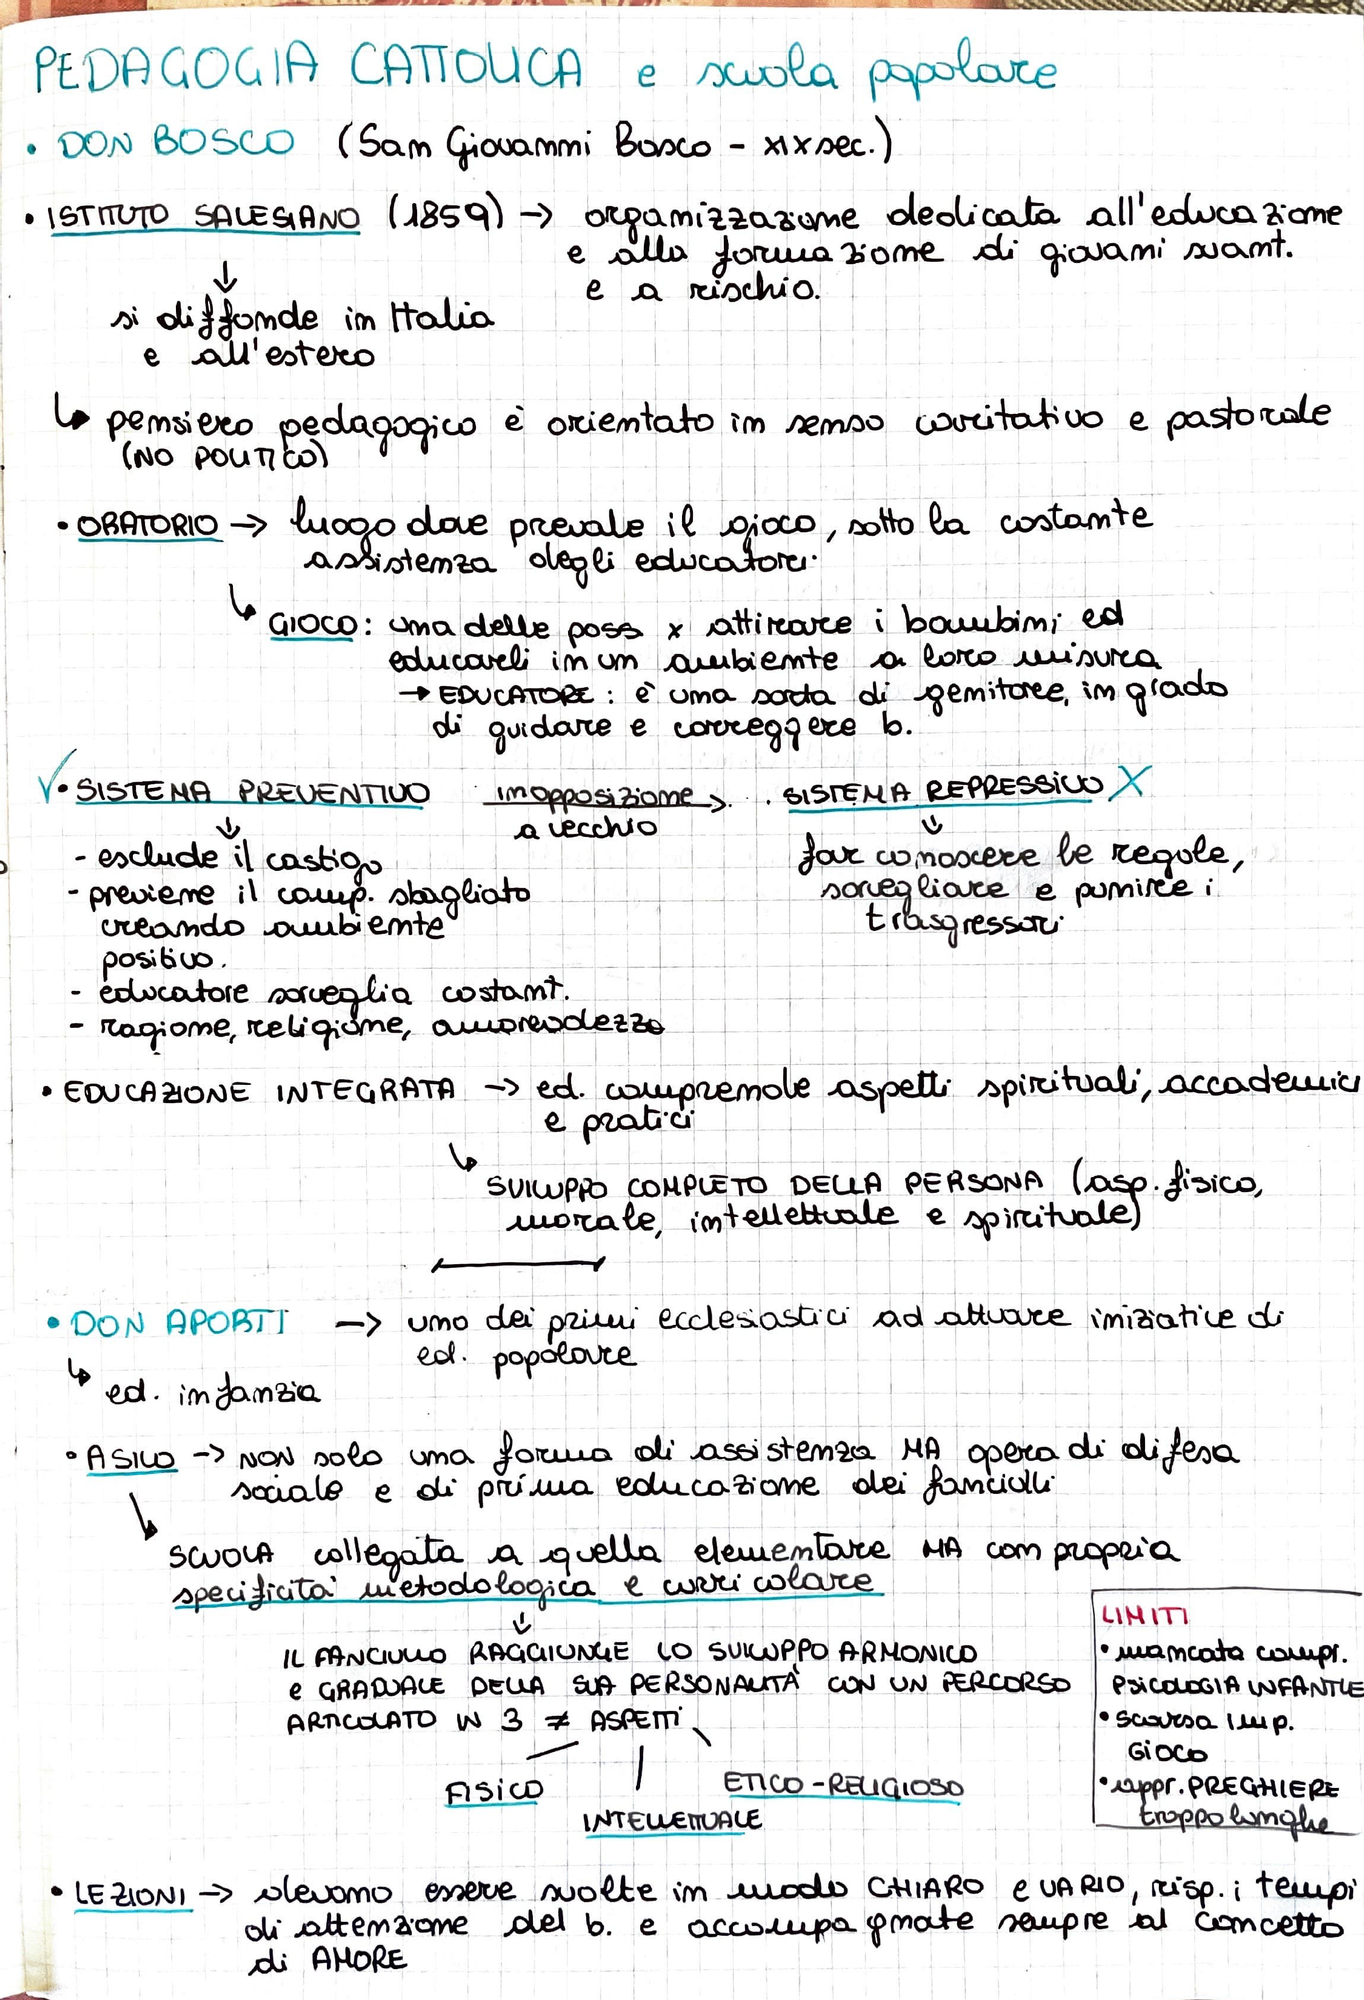 PEDAGOGIA CATTOLICA e scuola popolare
• DON BOSCO (San Giovanni Bosco - XIX sec.)
• ISTITUTO SALESIANO (1859) → organizzazione dedicata all'educazione
e alla formazione di giovani svant.
e a rischio.
↓
si diffonde in Italia
e all'estero
↳ pensiero pedagogico è orientato in senso caritativo e pastorale
(NO POLITICO)
• ORATORIO → luogo dove prevale il gioco, sotto la costante
assistenza degli educatori.
↳ GIOCO: una delle poss x attirare i bambini ed
educarli in un ambiente a loro misura
→ EDUCATORE: è una sorta di genitore, in grado
di guidare e correggere b.
√ • SISTEMA PREVENTIVO in opposizione → . SISTEMA REPRESSIVO X
a vecchio
↓
- esclude il castigo
- previene il comp. sbagliato
creando ambiente
positivo.
- educatore sorveglia costant.
- ragione, religione, amorevolezza
↓
far conoscere le regole,
sorvegliare e punire i
trasgressori
• EDUCAZIONE INTEGRATA → ed. comprende aspetti spirituali, accademici
e pratici
↳ SVILUPPO COMPLETO DELLA PERSONA (asp. fisico,
morale, intellettuale e spirituale)
• DON APORTI → uno dei primi ecclesiastici ad attuare iniziative di
ed. popolare
↳ ed. infanzia
• ASILO → NON solo una forma di assistenza MA opera di difesa
sociale e di prima educazione dei fanciulli
↘ SCUOLA collegata a quella elementare MA con propria
specificità metodologica e curricolare
↓
IL FANCIULLO RAGGIUNGE LO SVILUPPO ARMONICO
e GRADUALE DELLA SUA PERSONALITÀ CON UN PERCORSO
ARTICOLATO IN 3 ≠ ASPETTI
FISICO
INTELLETTUALE
ETICO-RELIGIOSO
LIMITI
• mancata compr.
PSICOLOGIA INFANTILE
• scarsa imp.
GIOCO
• rappr. PREGHIERE
troppo lunghe
• LEZIONI → devono essere svolte in modo CHIARO e VARIO, risp. i tempi
di attenzione del b. e accompagnate sempre al concetto
di AMORE